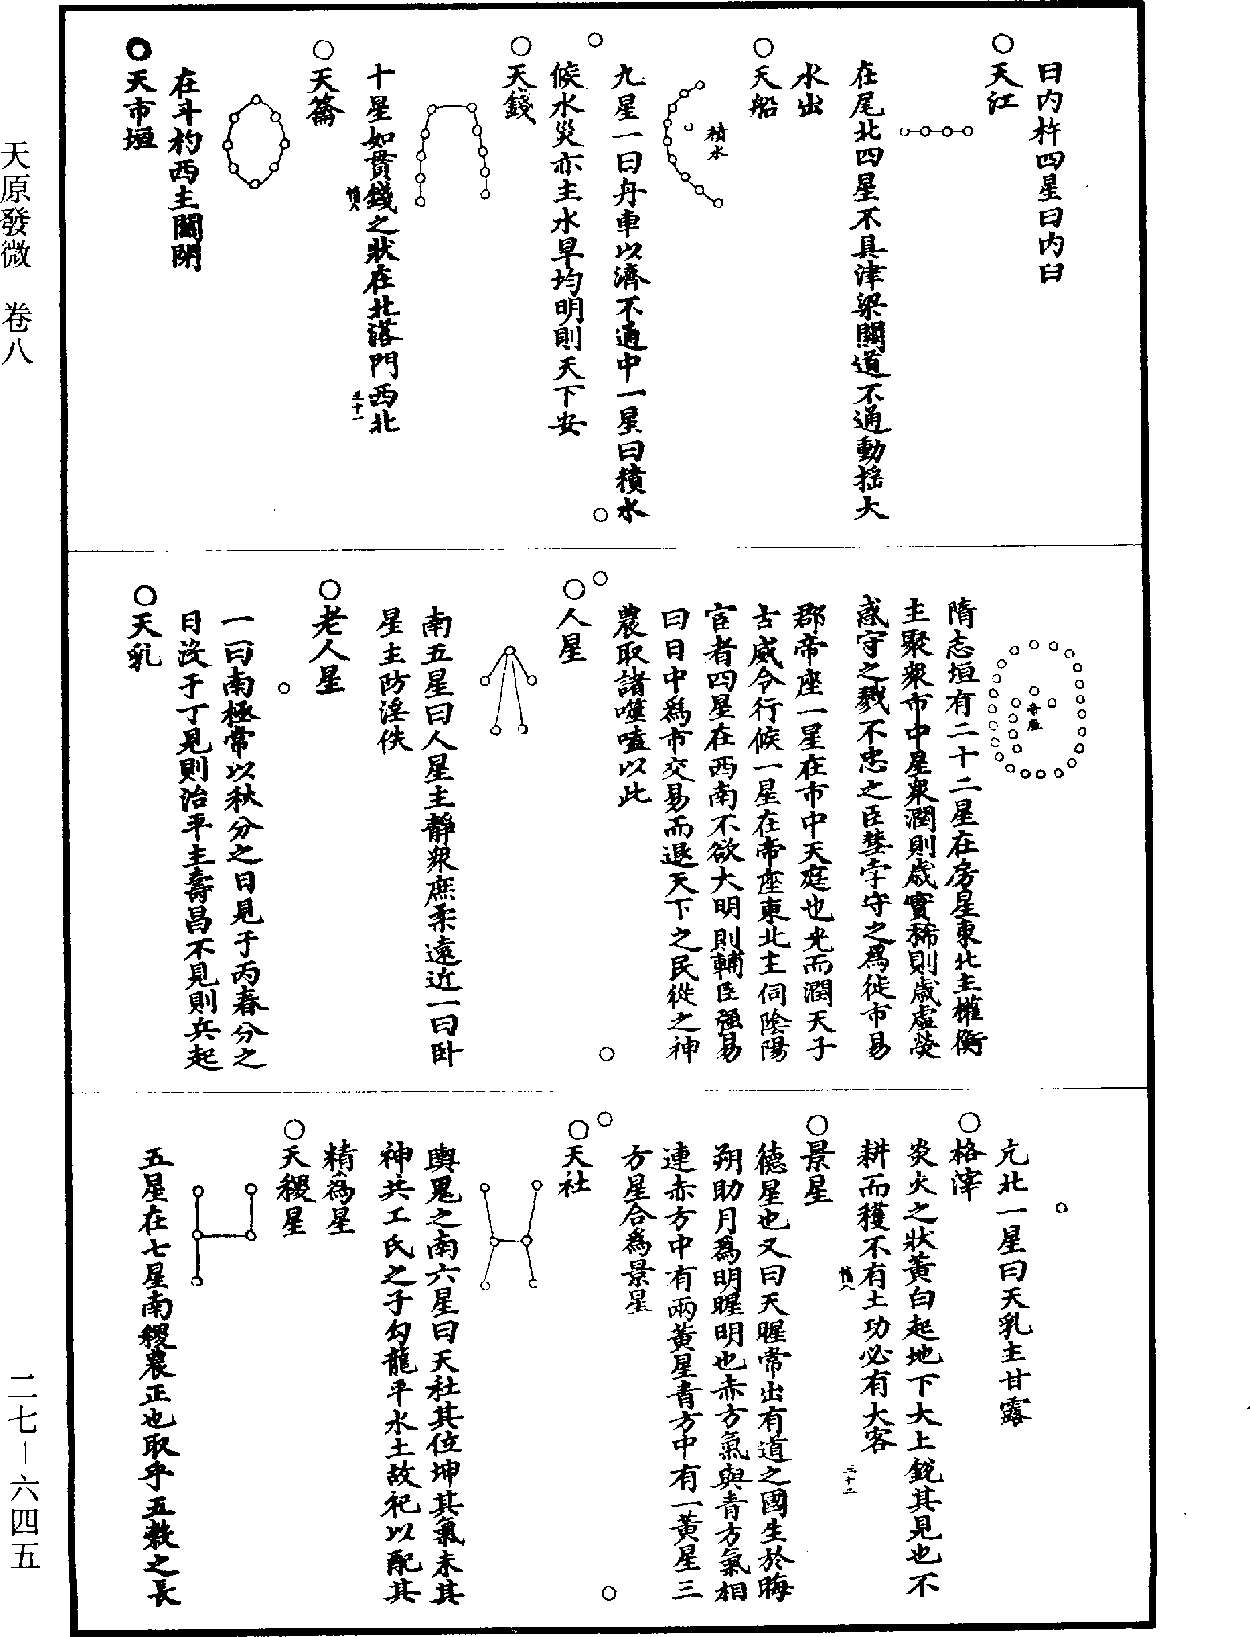 天原發微　卷八
二七—六四五
曰內杵四星曰內臼
○天江
在尾北四星不具津梁關道不通動揺大
水出
○天船
積水
九星一曰舟車以濟不通中一星曰積水
候水災亦主水旱均明則天下安
○天錢
十星如貫錢之狀在北落門西北
○天籥
在斗杓西主關閉
○天市垣
帝座
隋志垣有二十二星在房星東北主權衡
主聚衆市中星衆潤則歲實稀則歲虛熒
惑守之戮不忠之臣彗孛守之爲徙市易
郡帝座一星在市中天庭也光而潤天子
吉威令行候一星在帝座東北主伺陰陽
宦者四星在西南不欲大明則輔臣强易
曰日中爲市交易而退天下之民從之神
農取諸噬嗑以此
○人星
南五星曰人星主靜衆庶柔遠近一曰卧
星主防淫佚
○老人星
一曰南極常以秋分之日見于丙春分之
日沒于丁見則治平主壽昌不見則兵起
○天乳
亢北一星曰天乳主甘露
○格澤
炎火之狀黃白起地下大上銳其見也不
耕而穫不有土功必有大客
○景星
德星也又曰天暒常出有道之國生於晦
朔助月爲明暒明也赤方氣與青方氣相
連赤方中有兩黃星青方中有一黃星三
方星合爲景星
○天社
輿鬼之南六星曰天社其位坤其氣未其
神共工氏之子勾龍平水土故祀以配其
精爲星
○天稷星
五星在七星南稷農正也取乎五穀之長